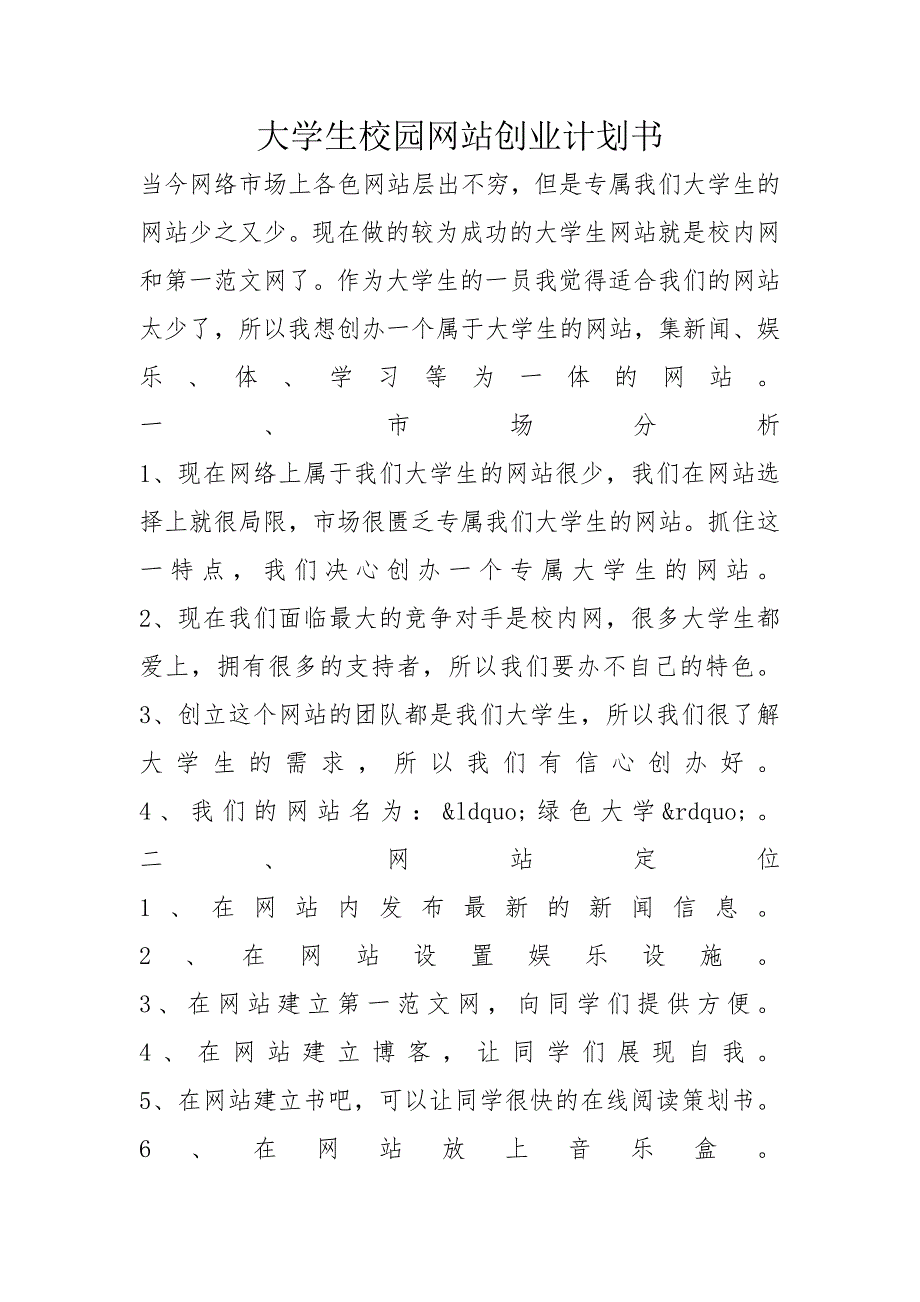 大学生校园网站创业计划书
当今网络市场上各色网站层出不穷，但是专属我们大学生的
网站少之又少。现在做的较为成功的大学生网站就是校内网
和第一范文网了。作为大学生的一员我觉得适合我们的网站
太少了，所以我想创办一个属于大学生的网站，集新闻、娱
乐、体、学习等为一体的网站。
一、市场分析
1、现在网络上属于我们大学生的网站很少，我们在网站选
择上就很局限，市场很匮乏专属我们大学生的网站。抓住这
一特点，我们决心创办一个专属大学生的网站。
2、现在我们面临最大的竞争对手是校内网，很多大学生都
爱上，拥有很多的支持者，所以我们要办不自己的特色。
3、创立这个网站的团队都是我们大学生，所以我们很了解
大学生的需求，所以我们有信心创办好。
4、我们的网站名为：&ldquo;绿色大学&rdquo;。
二、网站定位
1、在网站内发布最新的新闻信息。
2、在网站设置娱乐设施。
3、在网站建立第一范文网，向同学们提供方便。
4、在网站建立博客，让同学们展现自我。
5、在网站建立书吧，可以让同学很快的在线阅读策划书。
6、在网站放上音乐盒。